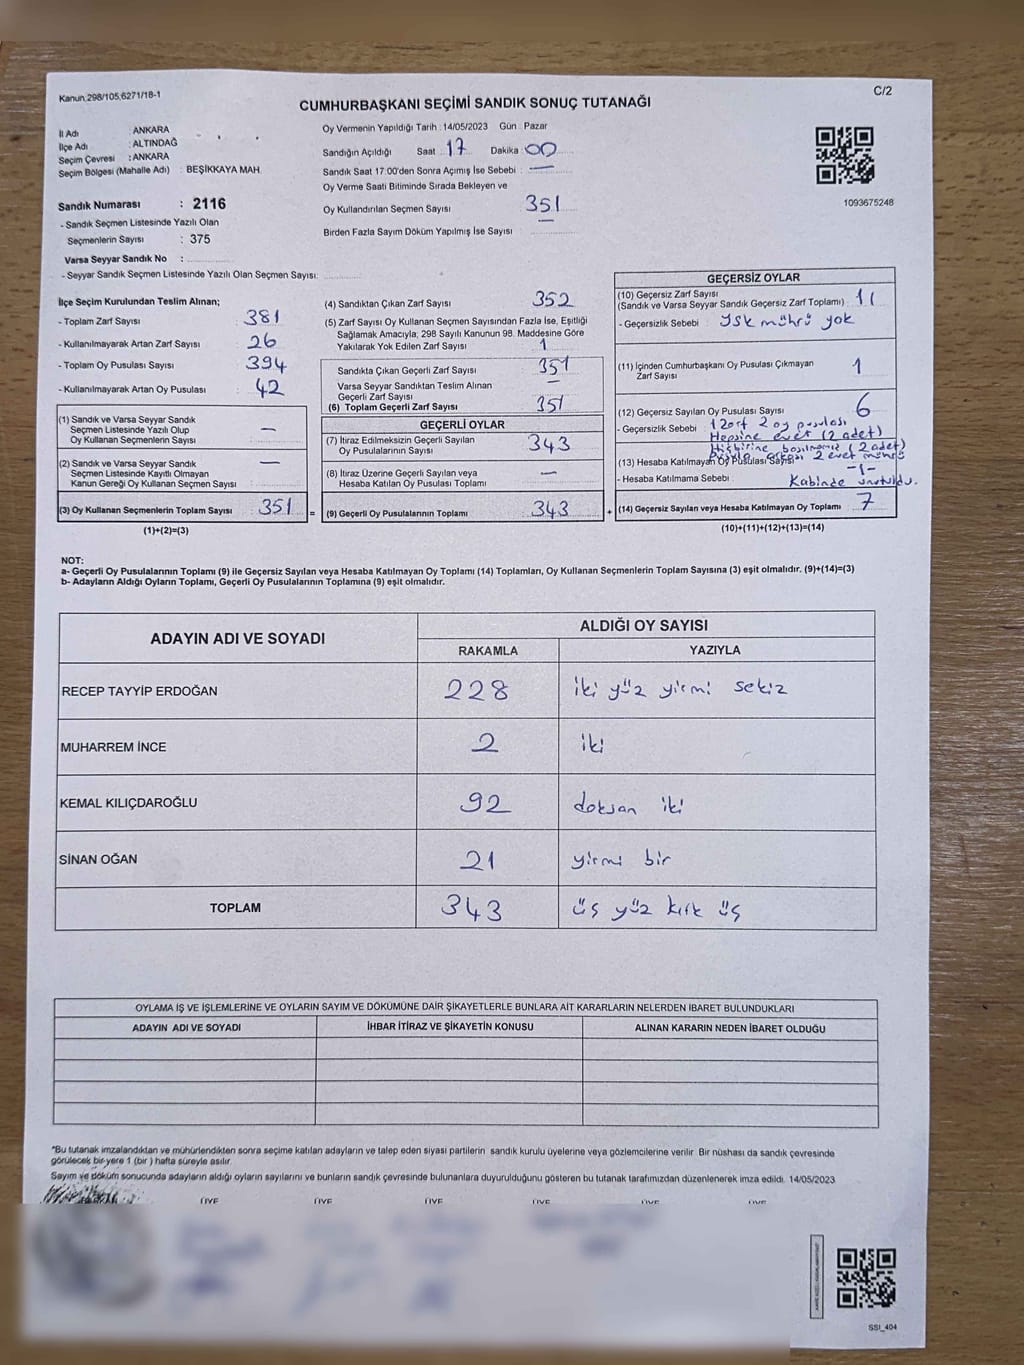 Kanun.298/105,6271/18-1
C/2
CUMHURBAŞKANI SEÇİMİ SANDIK SONUÇ TUTANAĞI
İl Adı : ANKARA
İlçe Adı : ALTINDAĞ
Seçim Çevresi : ANKARA
Seçim Bölgesi (Mahalle Adı) : BEŞİKKAYA MAH.
Sandık Numarası : 2116
- Sandık Seçmen Listesinde Yazılı Olan
Seçmenlerin Sayısı : 375
Varsa Seyyar Sandık No :
- Seyyar Sandık Seçmen Listesinde Yazılı Olan Seçmen Sayısı:
Oy Vermenin Yapıldığı Tarih : 14/05/2023 Gün : Pazar
Sandığın Açıldığı Saat : 17 Dakika : 00
Sandık Saat 17:00'den Sonra Açımış İse Sebebi : —
Oy Verme Saati Bitiminde Sırada Bekleyen ve
Oy Kullandırılan Seçmen Sayısı 351
Birden Fazla Sayım Döküm Yapılmış İse Sayısı : —
1093675248
İlçe Seçim Kurulundan Teslim Alınan;
- Toplam Zarf Sayısı : 381
- Kullanılmayarak Artan Zarf Sayısı : 26
- Toplam Oy Pusulası Sayısı : 394
- Kullanılmayarak Artan Oy Pusulası : 42
(1) Sandık ve Varsa Seyyar Sandık
Seçmen Listesinde Yazılı Olup
Oy Kullanan Seçmenlerin Sayısı : —
(2) Sandık ve Varsa Seyyar Sandık
Seçmen Listesinde Kayıtlı Olmayan
Kanun Gereği Oy Kullanan Seçmen Sayısı : —
(3) Oy Kullanan Seçmenlerin Toplam Sayısı : 351 =
(1)+(2)=(3)
(4) Sandıktan Çıkan Zarf Sayısı : 352
(5) Zarf Sayısı Oy Kullanan Seçmen Sayısından Fazla İse, Eşitliği
Sağlamak Amacıyla; 298 Sayılı Kanunun 98. Maddesine Göre
Yakılarak Yok Edilen Zarf Sayısı : 1
Sandıkta Çıkan Geçerli Zarf Sayısı : 351
Varsa Seyyar Sandıktan Teslim Alınan
Geçerli Zarf Sayısı : —
(6) Toplam Geçerli Zarf Sayısı : 351
GEÇERLİ OYLAR
(7) İtiraz Edilmeksizin Geçerli Sayılan
Oy Pusulalarının Sayısı : 343
(8) İtiraz Üzerine Geçerli Sayılan veya
Hesaba Katılan Oy Pusulası Toplamı : —
(9) Geçerli Oy Pusulalarının Toplamı : 343 +
GEÇERSİZ OYLAR
(10) Geçersiz Zarf Sayısı
(Sandık ve Varsa Seyyar Sandık Geçersiz Zarf Toplamı)
- Geçersizlik Sebebi : YSK mührü yok
(11) İçinden Cumhurbaşkanı Oy Pusulası Çıkmayan
Zarf Sayısı : 1
(12) Geçersiz Sayılan Oy Pusulası Sayısı : 6
- Geçersizlik Sebebi : 1 Zarf 2 oy pusulası
Hepsine evet (2 adet)
Hiçbirine basılmamış (2 adet)
2 evet mührü
(13) Hesaba Katılmayan Oy Pusulası Sayısı : -1-
- Hesaba Katılmama Sebebi : Kabinde unutuldu.
(14) Geçersiz Sayılan veya Hesaba Katılmayan Oy Toplamı : 7
(10)+(11)+(12)+(13)=(14)
NOT:
a- Geçerli Oy Pusulalarının Toplamı (9) ile Geçersiz Sayılan veya Hesaba Katılmayan Oy Toplamı (14) Toplamları, Oy Kullanan Seçmenlerin Toplam Sayısına (3) eşit olmalıdır. (9)+(14)=(3)
b- Adayların Aldığı Oyların Toplamı, Geçerli Oy Pusulalarının Toplamına (9) eşit olmalıdır.
ADAYIN ADI VE SOYADI ALDIĞI OY SAYISI
RAKAMLA YAZIYLA
RECEP TAYYİP ERDOĞAN 228 iki yüz yirmi sekiz
MUHARREM İNCE 2 iki
KEMAL KILIÇDAROĞLU 92 doksan iki
SİNAN OĞAN 21 yirmi bir
TOPLAM 343 üç yüz kırk üç
OYLAMA İŞ VE İŞLEMLERİNE VE OYLARIN SAYIM VE DÖKÜMÜNE DAİR ŞİKAYETLERLE BUNLARA AİT KARARLARIN NELERDEN İBARET BULUNDUKLARI
ADAYIN ADI VE SOYADI İHBAR İTİRAZ VE ŞİKAYETİN KONUSU ALINAN KARARIN NEDEN İBARET OLDUĞU
*Bu tutanak imzalandıktan ve mühürlendikten sonra seçime katılan adayların ve talep eden siyasi partilerin sandık kurulu üyelerine veya gözlemcilerine verilir. Bir nüshası da sandık çevresinde
görülecek bir yere 1 (bir ) hafta süreyle asılır.
Sayım ve döküm sonucunda adayların aldığı oyların sayılarını ve bunların sandık çevresinde bulunanlara duyurulduğunu gösteren bu tutanak tarafımızdan düzenlenerek imza edildi. 14/05/2023
ÜYE ÜYE ÜYE ÜYE ÜYE ÜYE
SSI_404